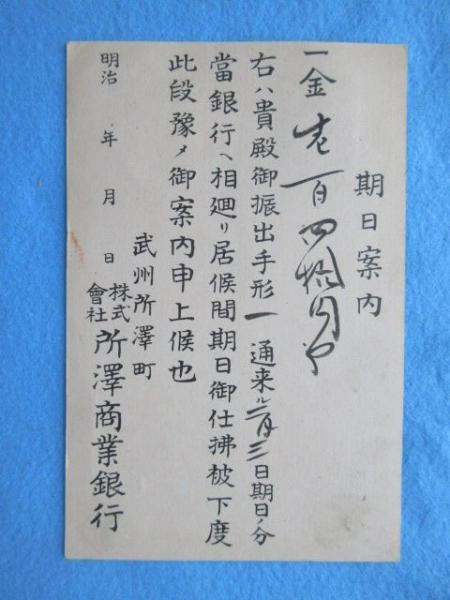 期日案内
一金壱百四拾円也
右ハ貴殿御振出手形一通来ル二月三日期日ノ分
當銀行ヘ相廻リ居候間期日御仕拂被下度
此段豫メ御案内申上候也
武州所澤町
明治 年 月 日 株式會社所澤商業銀行